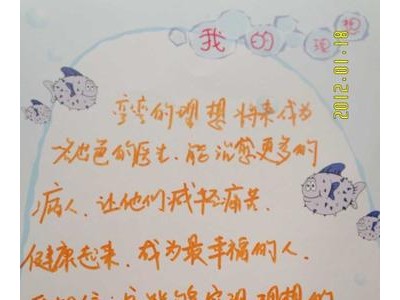 我的理想
2012.01.18
弯弯的理想将来成为
出色的医生.能治愈更多的
病人.让他们减轻痛苦.
健康起来.成为最幸福的人.
实现理想的